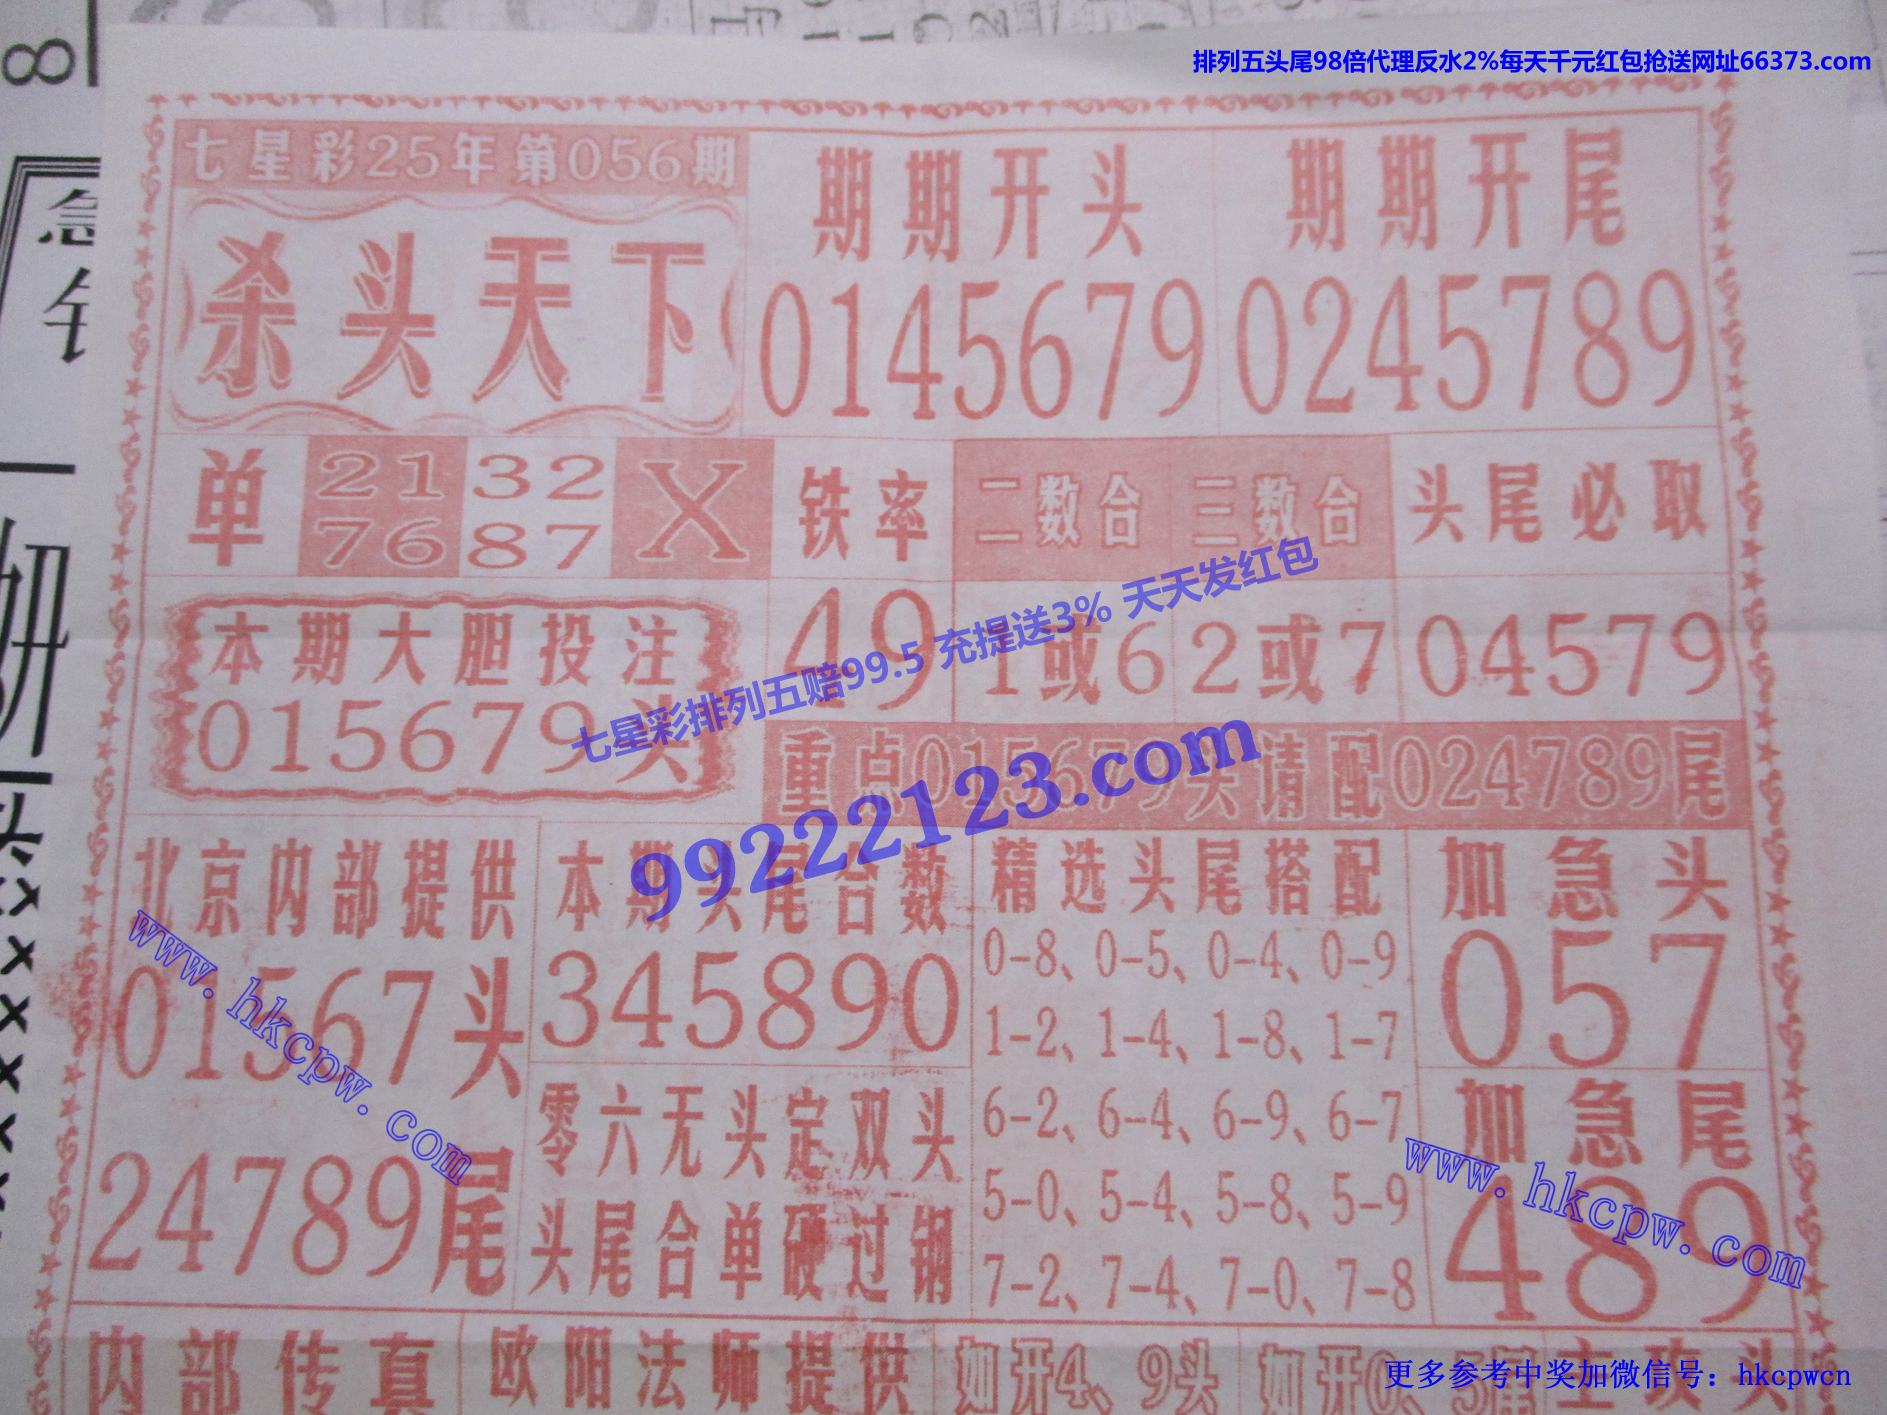 排列五头尾98倍代理反水2%每天千元红包抢送网址66373.com
七星彩25年第056期
杀头天下
期期开头
0145679
期期开尾
0245789
单
21 32
76 87
X
铁率
49
二数合
1或6
三数合
2或7
头尾必取
04579
本期大胆投注
015679头
重点015679头请配024789尾
七星彩排列五赔99.5 充提送3% 天天发红包
99222123.com
北京内部提供
01567头
24789尾
本期头尾合数
345890
零六无头定双头
头尾合单硬过钢
精选头尾搭配
0-8、0-5、0-4、0-9
1-2、1-4、1-8、1-7
6-2、6-4、6-9、6-7
5-0、5-4、5-8、5-9
7-2、7-4、7-0、7-8
加急头
057
加急尾
489
www.hkcpw.com
www.hkcpw.com
内部传真
欧阳法师提供
如开4、9头
如开0、5尾
主攻头
更多参考中奖加微信号：hkcpwcn